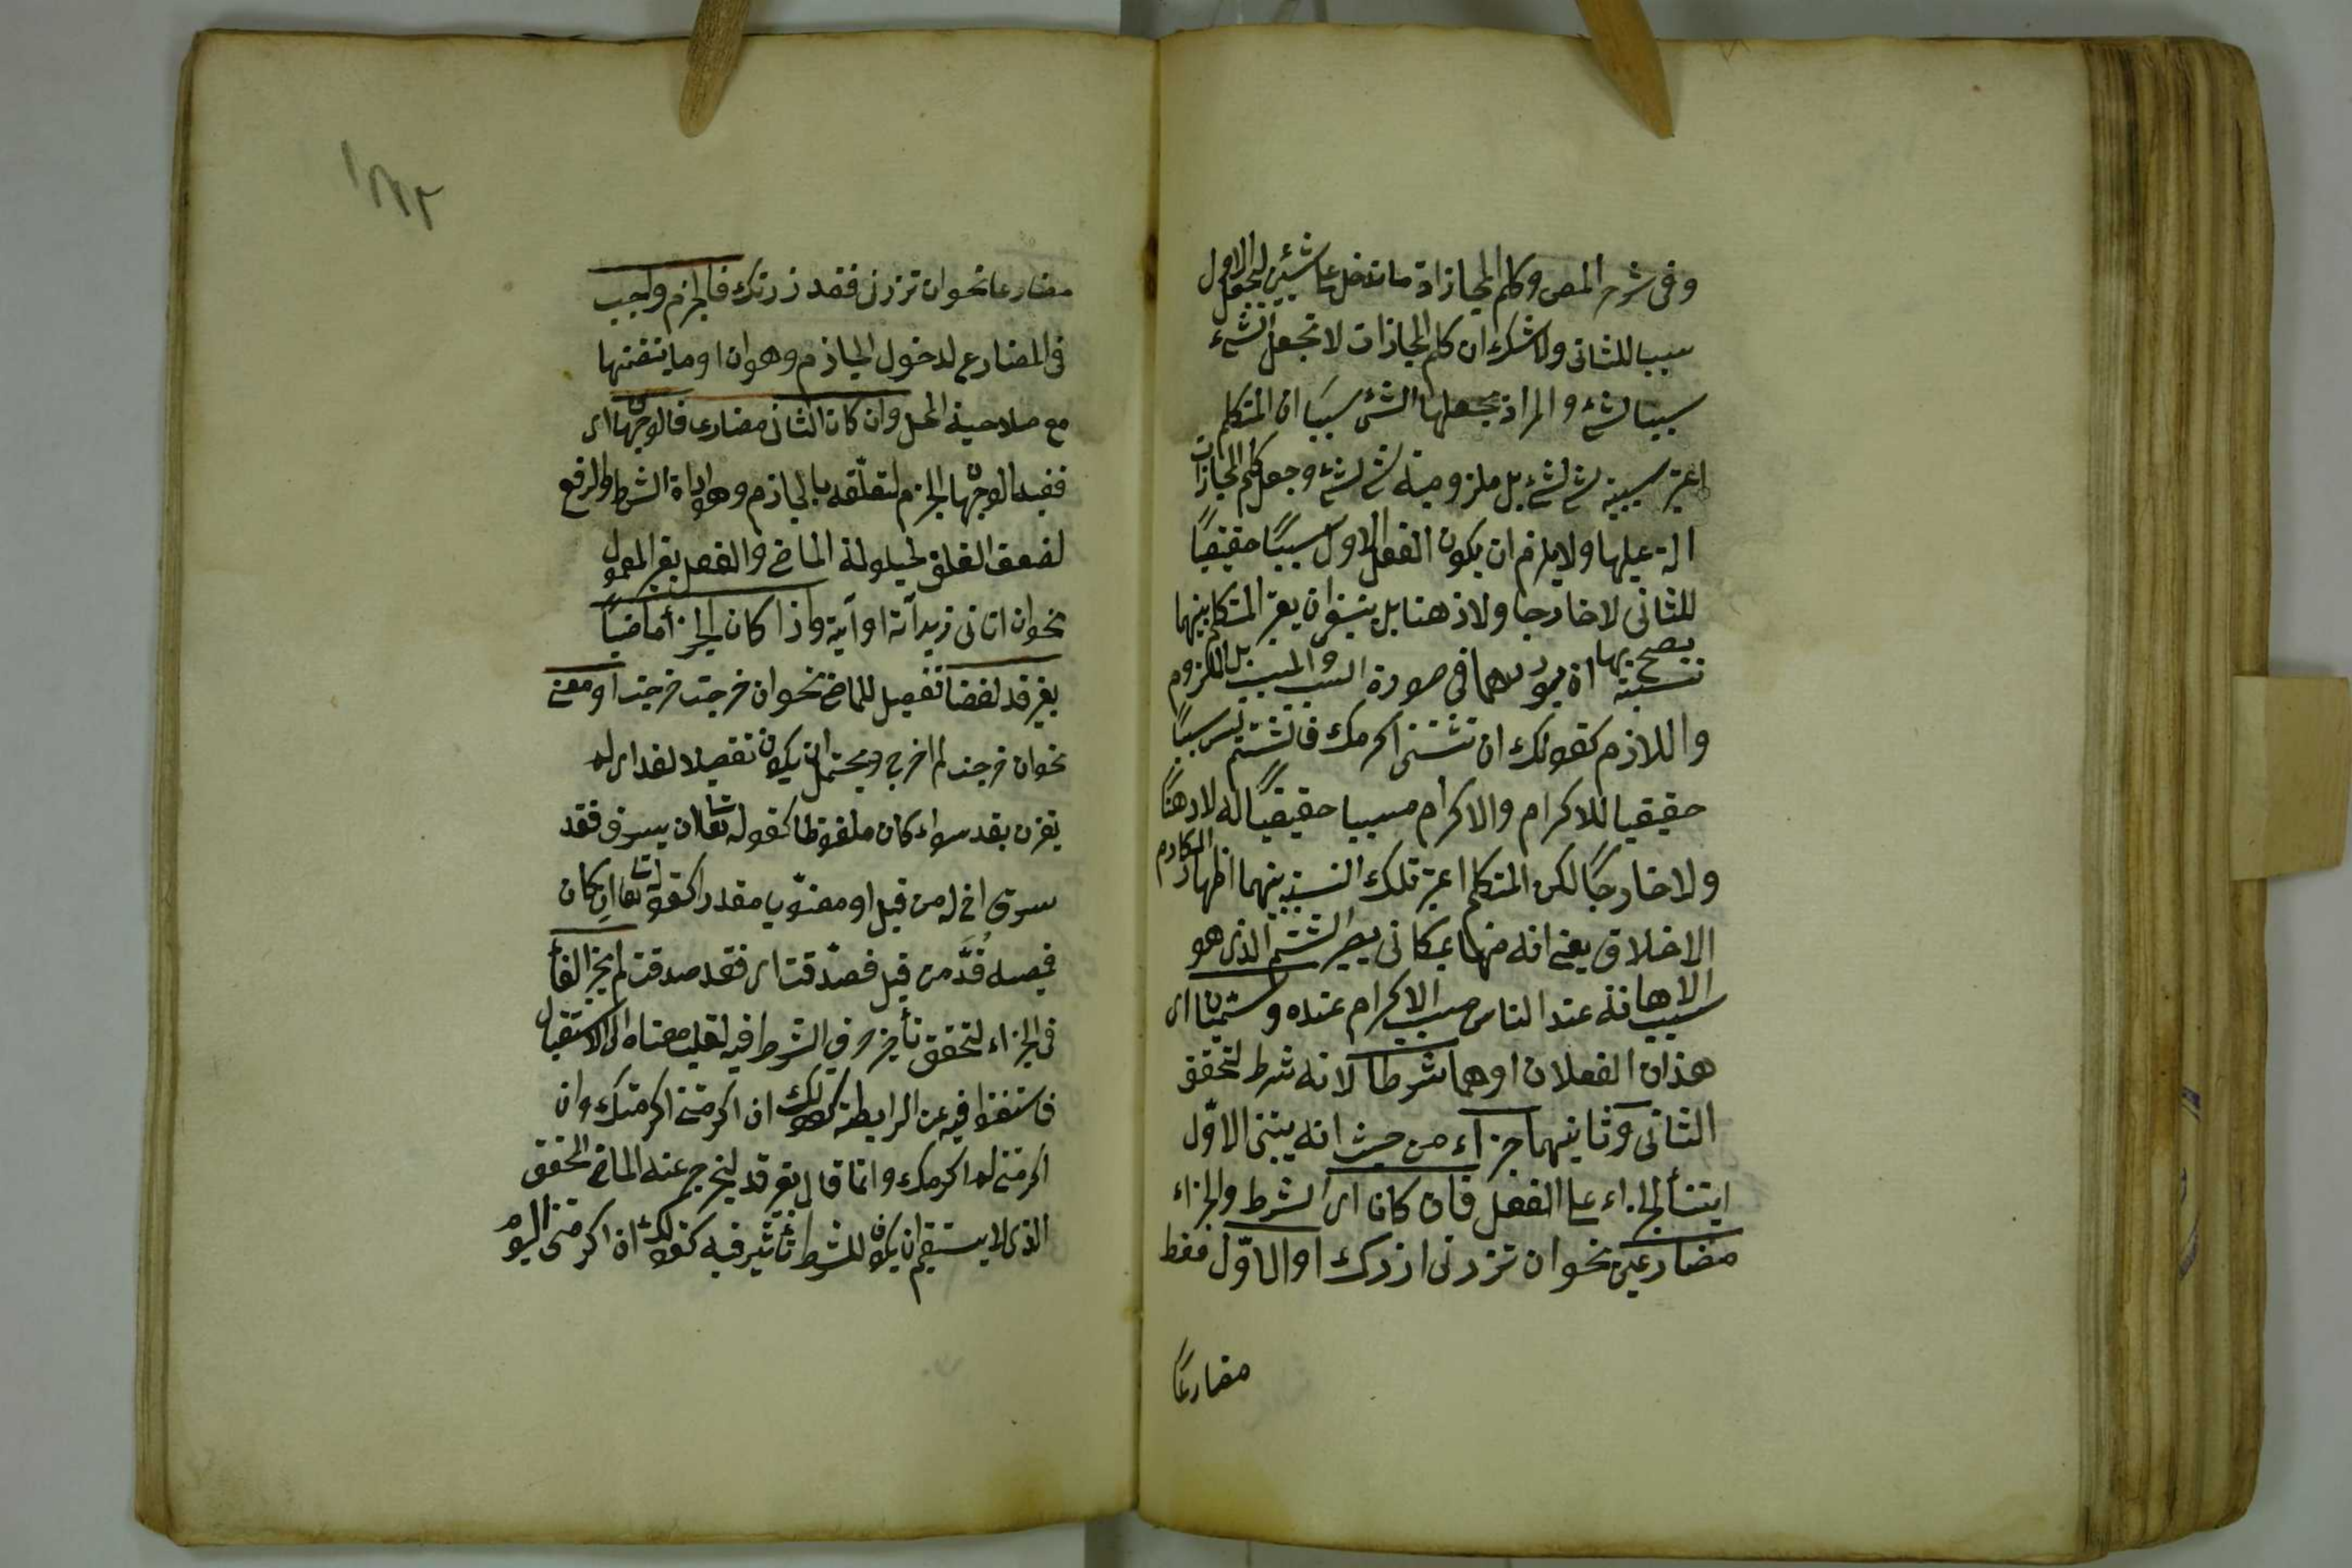 وفى شرح المص وكلم المجازاة ما تدخل على شيئين ليجعل الاول
سببا للثانى ولا شك ان كلم المجازات لا تجعل الشئ
سببا لشئ والمراد بجعلها الشئ سببا ان المتكلم
اعتبر سببية شئ لشئ بل ملزومية شئ لشئ وجعل كلم المجازات
الة عليها ولا يلزم ان يكون الفعل الاول سببًا حقيقيًا
للثانى لا خارجا ولا ذهنا بل ينبغى ان يعتبر المتكلم بينهما
نسبة يصح بها ان يوردهما فى صورة السبب والمسبب بل الملزوم
واللازم كقولك ان تشتمنى اكرمك فالشتم ليس سببًا
حقيقيا للاكرام والاكرام مسببا حقيقيًا له لا ذهنًا
ولا خارجًا لكن المتكلم اعتبر تلك النسبة بينهما اظهارا لمكارم
الاخلاق يعنى انه منها بمكان يصير الشتم الذى هو
سبب الاهانة عند الناس سبب الاكرام عنده وسميان اى
هذان الفعلان اولهما شرطا لانه شرط لتحقق
الثانى وثانيهما جزاء من حيث انه يبتنى الاوّل
ابتنأ الجزاء على الفعل فان كانا اى الشرط والجزاء
مضارعين نحو ان تزرنى ازرك او الاوّل فقط
مضارعًا
مضارعا نحو ان تزرنى فقد زرتك فالجزم واجب
فى المضارع لدخول الجازم وهو ان او ما يتضمنها
مع صلاحية المحل وان كان الثانى مضارعا فالوجهان اى
ففيه الوجهان الجزم لتعلّقه بالجازم وهو اداة الشرط والرفع
لضعف التعلق لحيلولة الماضى والفصل بغير المعمول
نحو ان اتانى زيد آته او آتيه واذا كان الجزأ ماضيًا
بغير قد لفظا تفصيل للماضى نحو ان خرجت خرجت او معنى
نحو ان خرجت لم اخرج ويحتمل ان يكون تفصيلا لقد اى لم
يقترن بقد سواء كان ملفوظا كقوله تعالى ان يسرق فقد
سرق اخ له من قبل او معنوى مقدرا كقوله تعالى ان كان
قميصه قُدَّ من قبل فصدقت اى فقد صدقت لم يجز الفأ
فى الجزاء لتحقق تأثير حرف الشرط فيه لقلب معناه الى الاستقبال
فاستغنوا فيه عن الرابطة كقولك ان اكرمتنى اكرمتك وان
اكرمتنى لم اكرمك وانما قال بغير قد ليخرج عنه الماضى المحقق
الذى لا يستقيم ان يكون للشرط تأثير فيه كقولك ان اكرمتنى اليوم